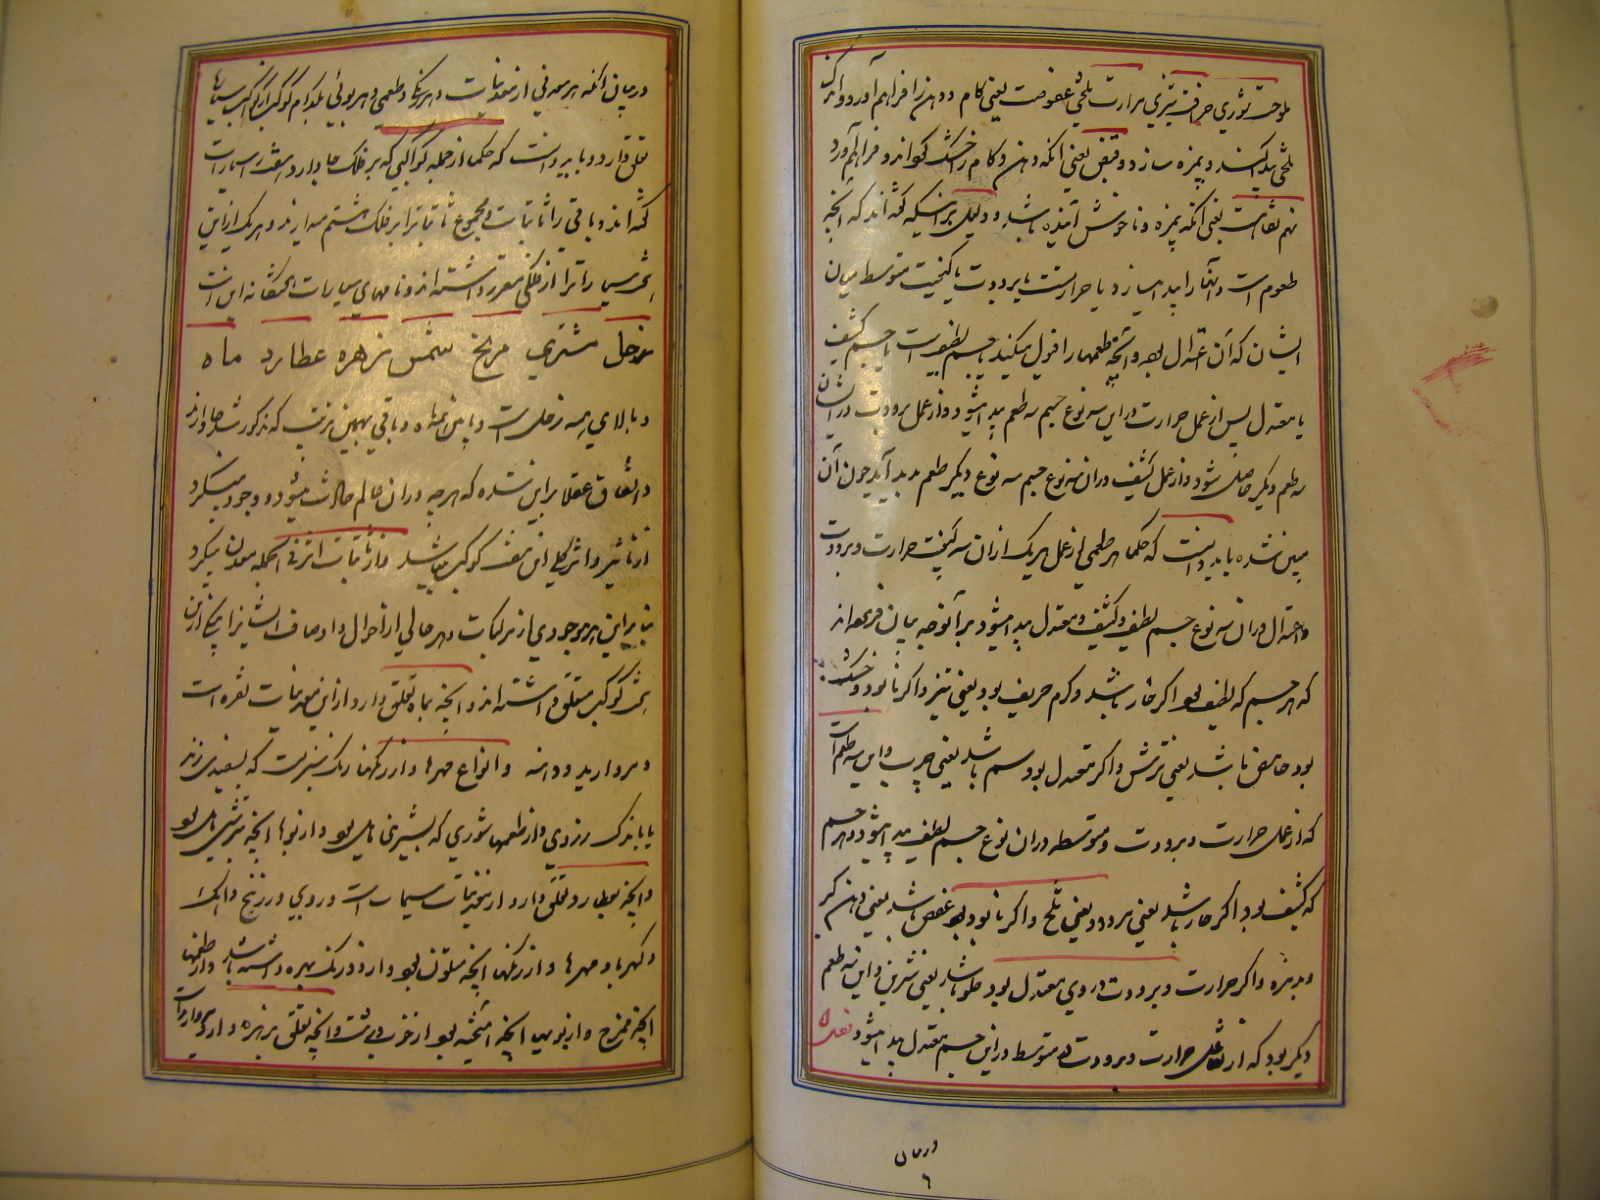 ملوحت شوری حرافت تیزی مرارت تلخی عفوصت یعنی کام و دهن را فراهم آورد و اندک
تلخی پیدا کند و بیمزه سازد و قبض یعنی آنکه دهن و کام را خشک گرداند و فراهم آورد
نهم تفاهت یعنی آنکه بیمزه و ناخوش آینده باشد و دلیل برانیکه گفته اند که آنچه
طعوم است و آنها را پیدا میسازد یا حرارتست یا برودت یا کیفیت متوسط میان
ایشان که آن اعتدال بود و آنچه طعمها را قبول میکند یا جسم لطیف است یا جسم کثیف
یا معتدل پس از عمل حرارت در این سه نوع جسم سه طعم پیدا میشود و از عمل برودت در ایشان
سه طعم دیگر حاصل شود و از عمل کثیف در آن سه نوع جسم سه نوع دیگر طعم پدید آید چون آن
مبین شده باید دانست که حکما هر طعمی از عمل هریک ازان سه کیفیت حرارت و برودت
و اعتدال دران سه نوع جسم لطیف و کثیف و معتدل پیدا میشود برآنوجه بیان فرموده اند
که هر جسم که لطیف بود اگر حار باشد و گرم حریف بود یعنی تیز و اگر بارد بود و خشک
بود حامض باشد یعنی ترش و اگر معتدل بود دسم باشد یعنی چرب و این سه طعم است
که از عمل حرارت و برودت و متوسطه دران نوع جسم لطیف پیدا میشود و هر جسم
که کثیف بود اگر حار باشد یعنی مر بود یعنی تلخ و اگر بارد بود عفص باشد یعنی دهن گیر
و بدمزه و اگر حرارت و برودت در وی معتدل بود حلو باشد یعنی شیرین و این سه طعم
دیگر بود که از تفاعل حرارت و برودت و متوسط در این جسم معتدل پیدا میشود
درمیان
۶
درمیان آنکه هر معدنی از معدنیات و هر رنگی و طعمی و هر بوئی بکدام کوکب از کواکب سیارها
تعلق دارد و باید دانست که حکما از جمله کواکبی که بر فلک جا دارد هفت را سیارات
گفته اند و باقی را ثابتات و مجموع ثابتات را بر فلک هشتم میدارند و هریک از این
سیارات را از فلکی مقرر داشته اند و نامهای سیارات هفتگانه این است
زحل مشتری مریخ شمس زهره عطارد ماه
و بالای همه زحل است و پائین تر ماه و باقی بهمین ترتیب که مذکور شد جا دارند
و اتفاق عقلا بر این شده که هرچه در این عالم حادث میشود و وجود میگیرد
از تاثیر و اثر کلی این هفت کوکب میباشد و از ثابتات اثر فی الجمله معدن میگیرد
بنابراین هر موجودی از مرکبات و هر حالی از احوال و اوصاف ایشان را بیکی ازین
کوکب متعلق داشته اند و آنچه بماه تعلق دارد از این معدنیات نقره است
و مروارید و دانه و انواع مهرها و از رنگها رنگ سبزیست که بسفیدی زند
یا باندک زردی و از طعمها شوری که بشیرینی مایل بود و از بوها آنچه بترشی مایل بود
و آنچه بعطارد تعلق دارد از معدنیات سیماب است و روی و زرنیخ و آهک
و کهربا و مهرها و از رنگها آنچه متلون بود و از دو رنگ بهره داشته باشد و از طعمها
آنچه ممتزج و از بویها آنچه آمیخته بود از خوب و زشت و آنچه تعلق بزهره دارد مروارید است